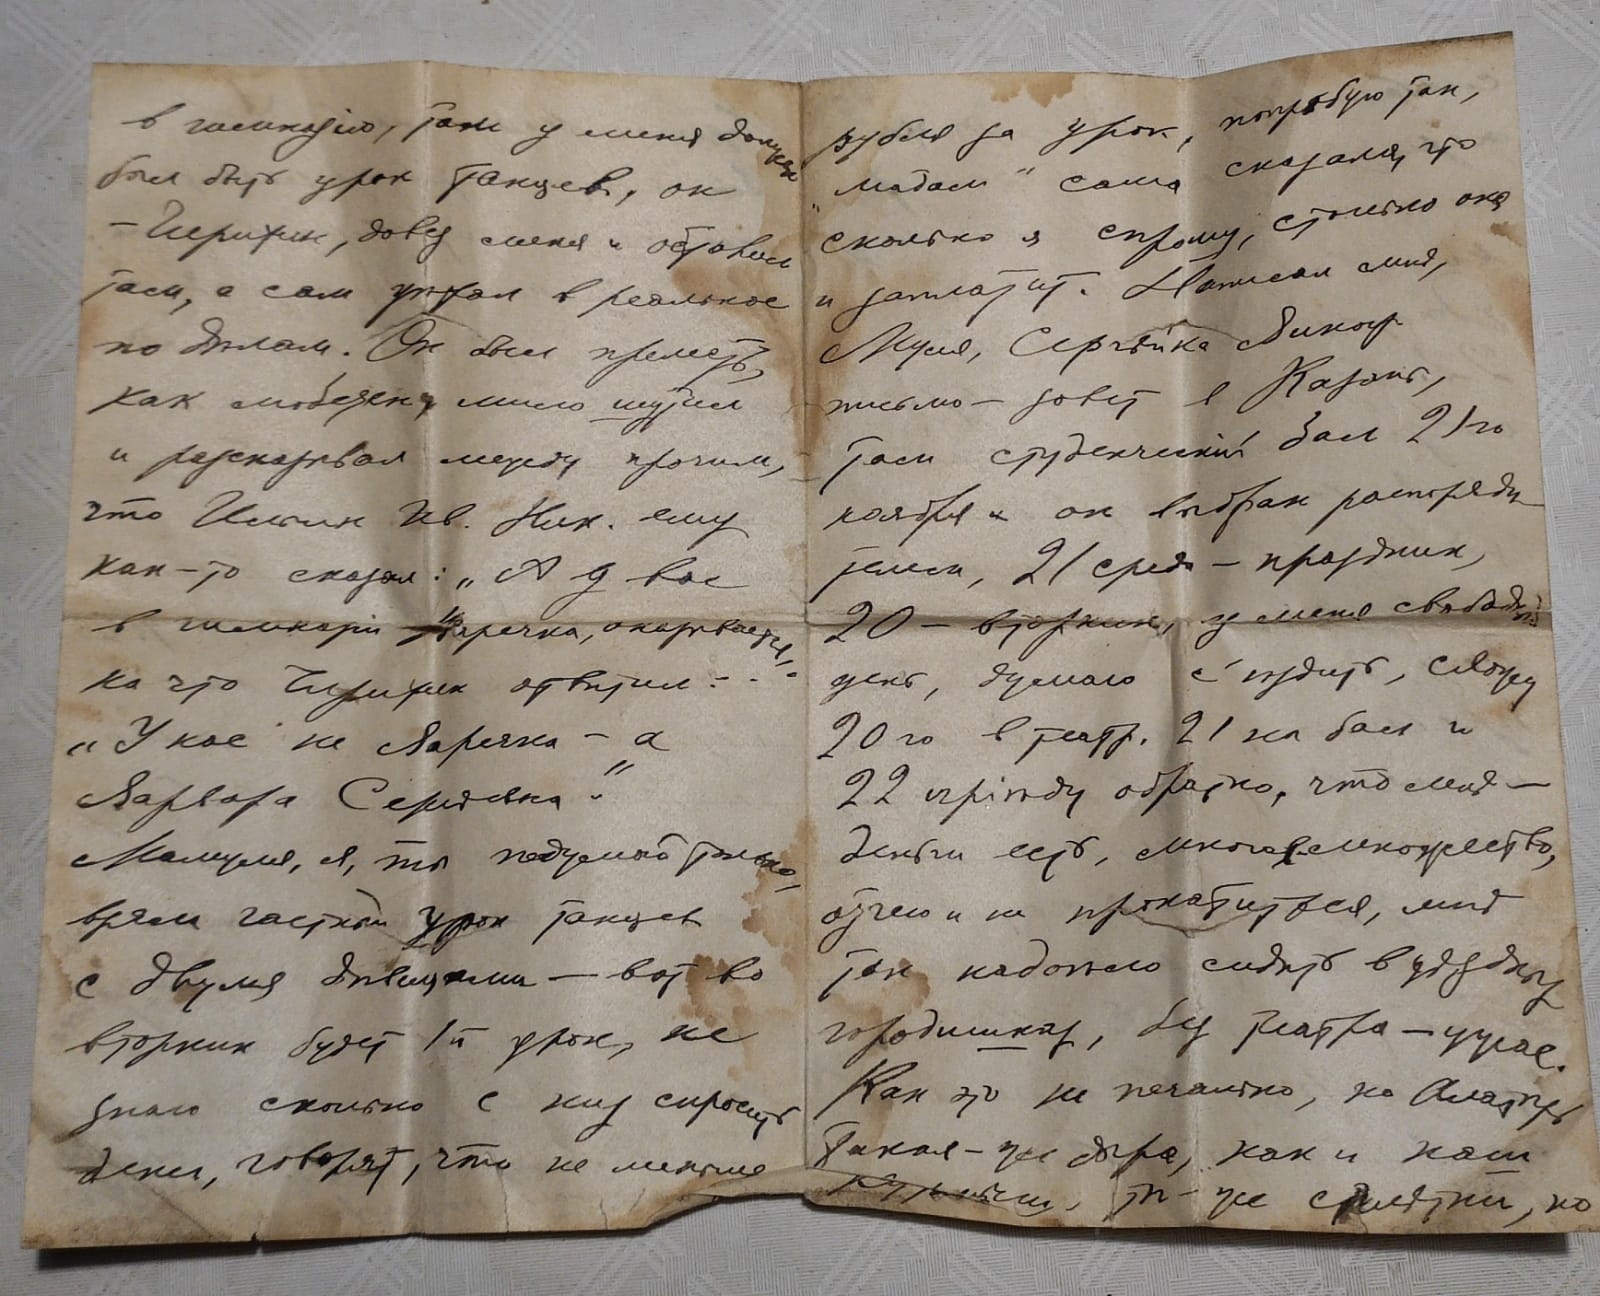 в гимназiю, там у меня должен
был быть урок танцев, он
– Чирихин, довез меня и оставил
там, а сам уѣхал в реальное
по дѣлам. Он был прелесть,
как любезен, мило шутил
и разсказывал между прочим,
что Ильин Ив. Ник. ему
как-то сказал: „А у вас
в гимназiи Варечка, оказывается",
на что Чирихин отвѣтил: –
„У нас не Варечка – а
Варвара Сергѣевна."
Мамуля, я, ты подумай только,
взяла частный урок танцев
с двумя дѣвицами – вот во
вторник будет 1й урок, не
знаю сколько с них спросить
денег, говорят, что не меньше
рубля за урок, попробую так,
„мадам" сама сказала, что
сколько я спрошу, столько она
и заплатит. Написал мнѣ,
Муля, Сергѣйка Виног.
письмо – зовет в Казань,
там студенческiй бал 21го
ноября и он выбран распоряди-
телем, 21 среда – праздник,
20 – вторник, у меня свободный
день, думаю съѣздить, схожу
20го в театр. 21 на бал и
22 прiѣду обратно, что мнѣ –
деньги есть, многое множество,
отчего и не прокатиться, мнѣ
так надоѣло сидѣть в уѣздных
городишках, без театра – ужас.
Как это не печально, но Алатырь
такая-же дыра, как и наш
тѣ-же сплетни, но